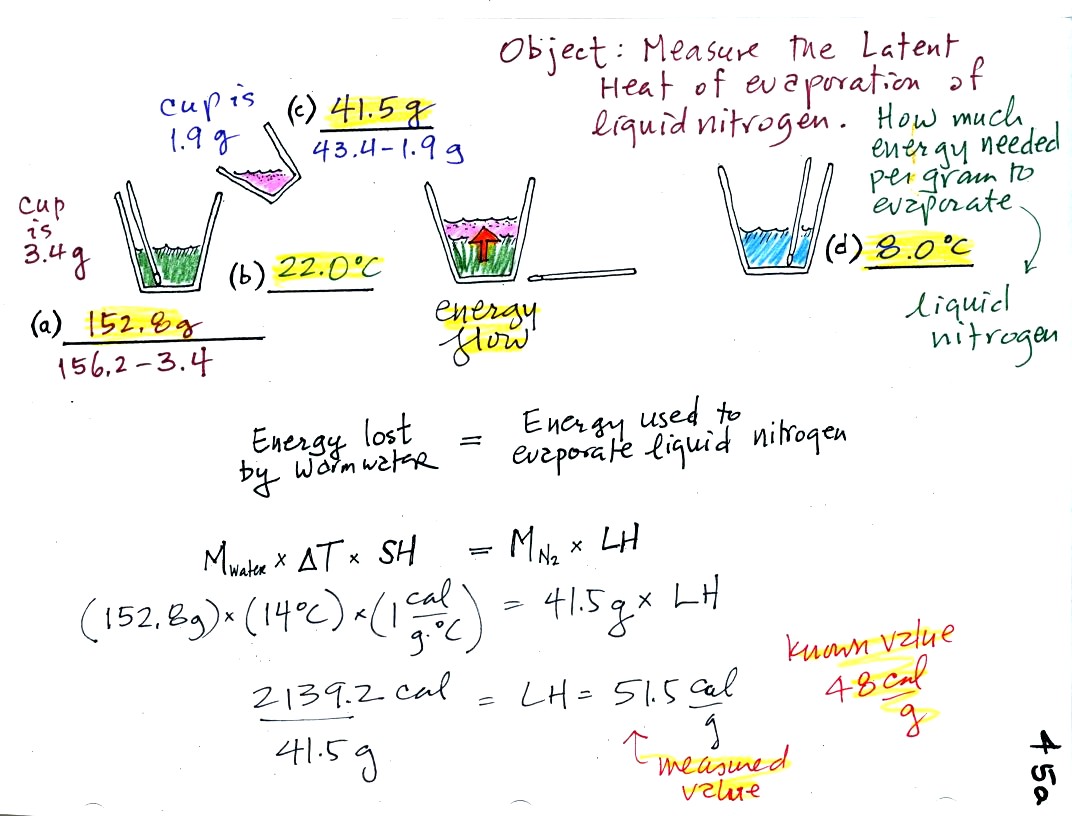 Object: Measure the Latent
Heat of evaporation of
liquid nitrogen.
How much
energy needed
per gram to
evaporate
liquid
nitrogen
cup is
1.9 g
(c) 41.5 g
43.4-1.9 g
cup
is
3.4 g
(b) 22.0°C
(a) 152.8g
156.2-3.4
energy
flow
(d) 8.0°C
Energy lost
by warm water
=
Energy used to
evaporate liquid nitrogen
M water × ΔT × SH = M N₂ × LH
(152.8g)×(14°C)×(1 cal/g.°C) = 41.5 g × LH
2139.2 cal / 41.5 g = LH = 51.5 cal/g
measured
value
known value
48 cal/g
45a